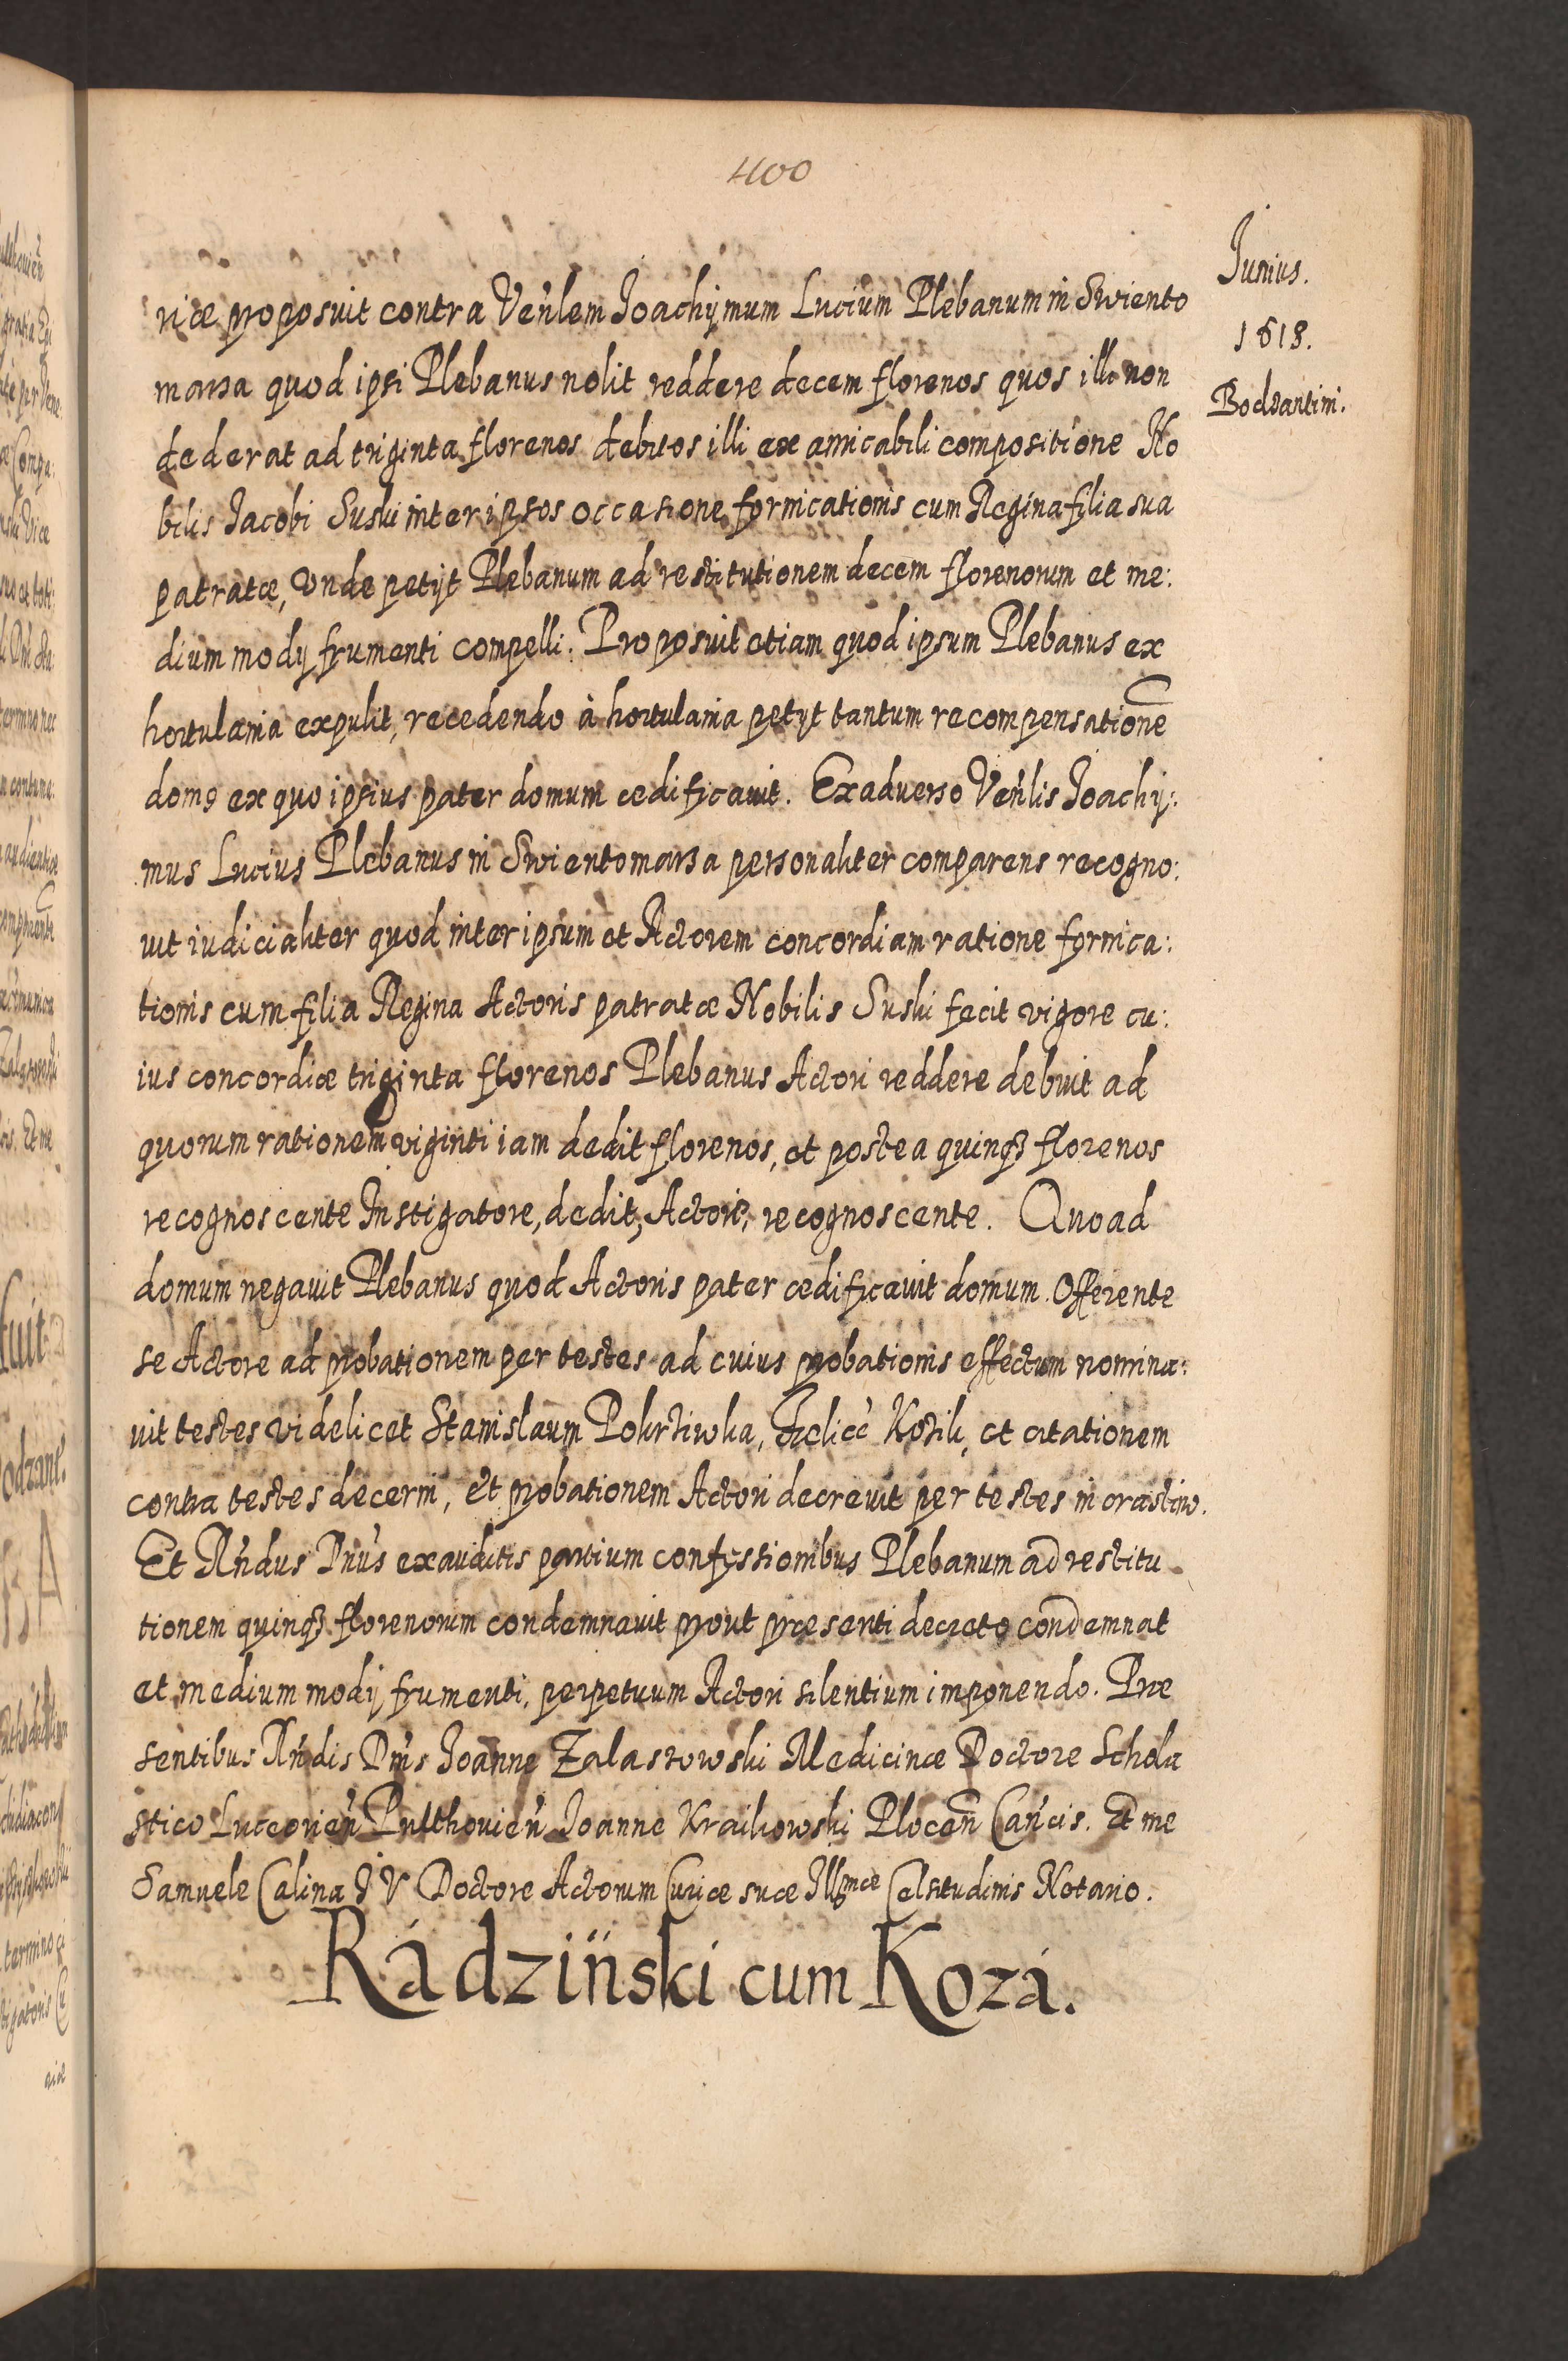 400
Junius.
1618.
Bodzantini.
riæ proposuit contra Ven̄lem Joachymum Lucium Plebanum in Swiento
marza quod ipsi Plebanus nolit reddere decem florenos quos illi non
dederat ad triginta florenos debitos illi ex amicabili compositione No
bilis Jacobi Suski inter ipsos occasione fornicationis cum Regina filia sua
patratæ, Unde petijt Plebanum ad restitutionem decem florenorum et me:
dium modij frumenti compelli. Proposuit etiam quod ipsum Plebanus ex
hortulania expulit, recedendo à hortulania petijt tantum recompensationē
domꝯ ex quo ipsius pater domum ædificauit. Ex aduerso Ven̄lis Joachy:
mus Lucius Plebanus in Swientomarza personaliter comparens recogno:
uit iudicialiter quod inter ipsum et Actorem concordiam ratione fornica:
tionis cum filia Regina Actoris patratæ Nobilis Suski fecit vigore cu:
ius concordiæ triginta florenos Plebanus Actori reddere debuit ad
quorum rationem viginti iam dedit florenos, et postea quinqꝫ florenos
recognoscente Instigatore, dedit, Actore, recognoscente. Quoad
domum negauit Plebanus quod Actoris pater ædificauit domum. Offerente
se Actore ad probationem per testes ad cuius probationis effectum nomina:
uit testes videlicet Stanislaum Pokrziwka, Kozik, et citationem
contra testes decerni, et probationem Actori decreuit per testes in crastino.
Et Rn̄dus Dn̄us exauditis partium confessionibus Plebanum ad restitu
tionem quinqꝫ florenorum condemnauit prout præsenti decreto condemnat
et medium modij frumenti, perpetuum Actori silentium imponendo. Præ
sentibus Rn̄dis Dn̄is Joanne Zalaszowski Medicinæ Doctore Schola
stico Luceorien̄ Pulthouien̄ Joanne Kraikowski Plocen̄ Can̄cis. Et me
Samuele Calina J V Doctore Actorum Curiæ suæ Illmæ Celsitudinis Notario.
Rádzinski cum Kozá.